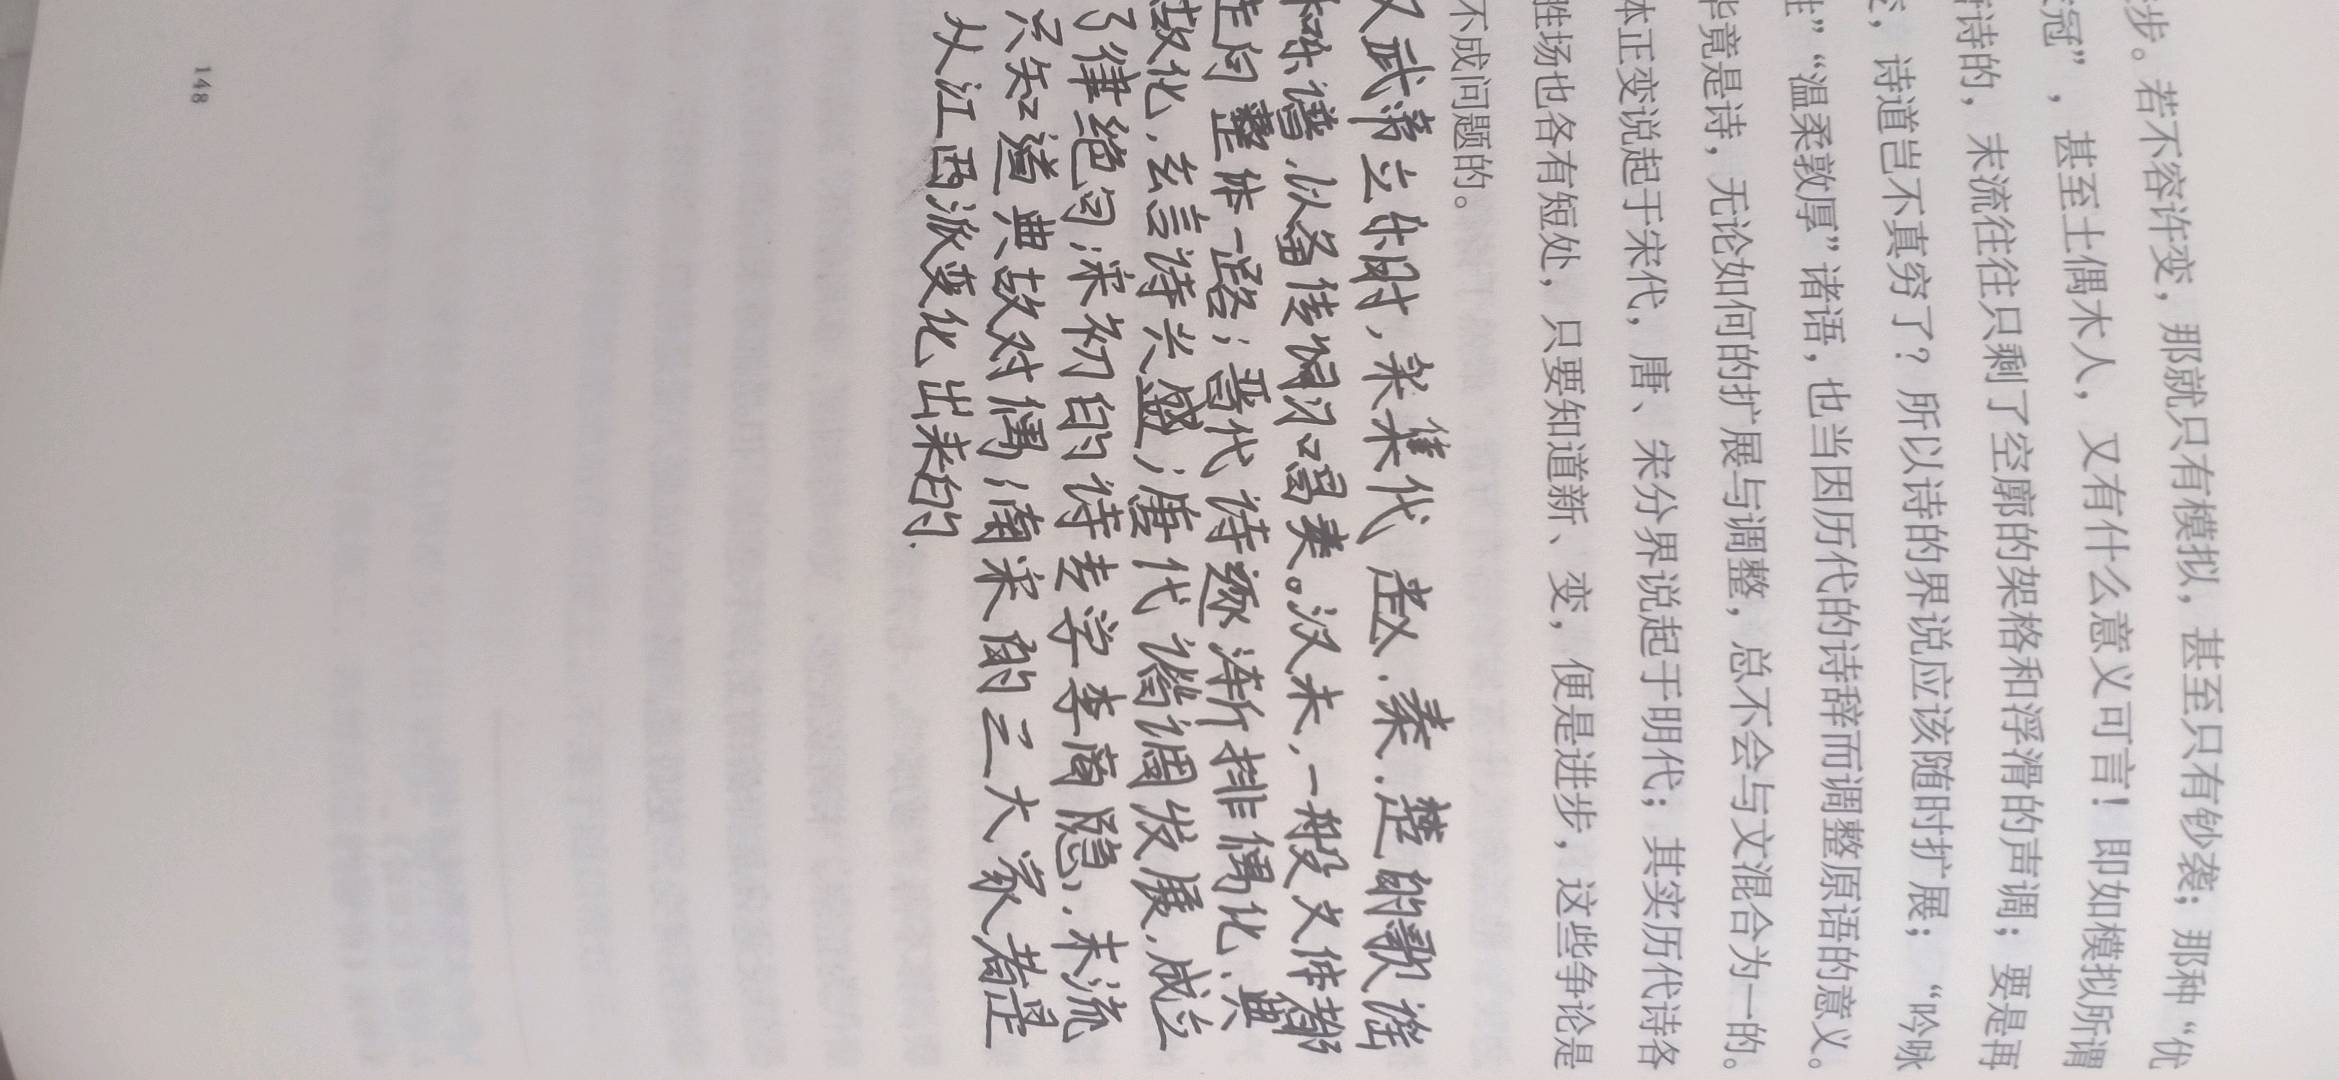 步。若不容许变，那就只有模拟，甚至只有钞袭；那种“优
冠”，甚至土偶木人，又有什么意义可言！即如模拟所谓
诗的，末流往往只剩了空廓的架格和浮滑的声调；要是再
，诗道岂不真穷了？所以诗的界说应该随时扩展；“吟咏
”“温柔敦厚”诸语，也当因历代的诗辞而调整原语的意义。
竟是诗，无论如何的扩展与调整，总不会与文混合为一的。
本正变说起于宋代，唐、宋分界说起于明代；其实历代诗各
胜场也各有短处，只要知道新、变，便是进步，这些争论是
不成问题的。
武帝立乐时，采集代、赵、秦、楚的歌谣
和乐谱，以备传习唱奏。汉末，一般文体都
走向整体一路；晋代诗逐渐排偶化、典
故化，玄言诗兴盛；唐代谐调发展，成立
了律绝句；宋初的诗专学李商隐，末流
只知道典故对偶；南宋的三大家着是
从江西派变化出来的.
148